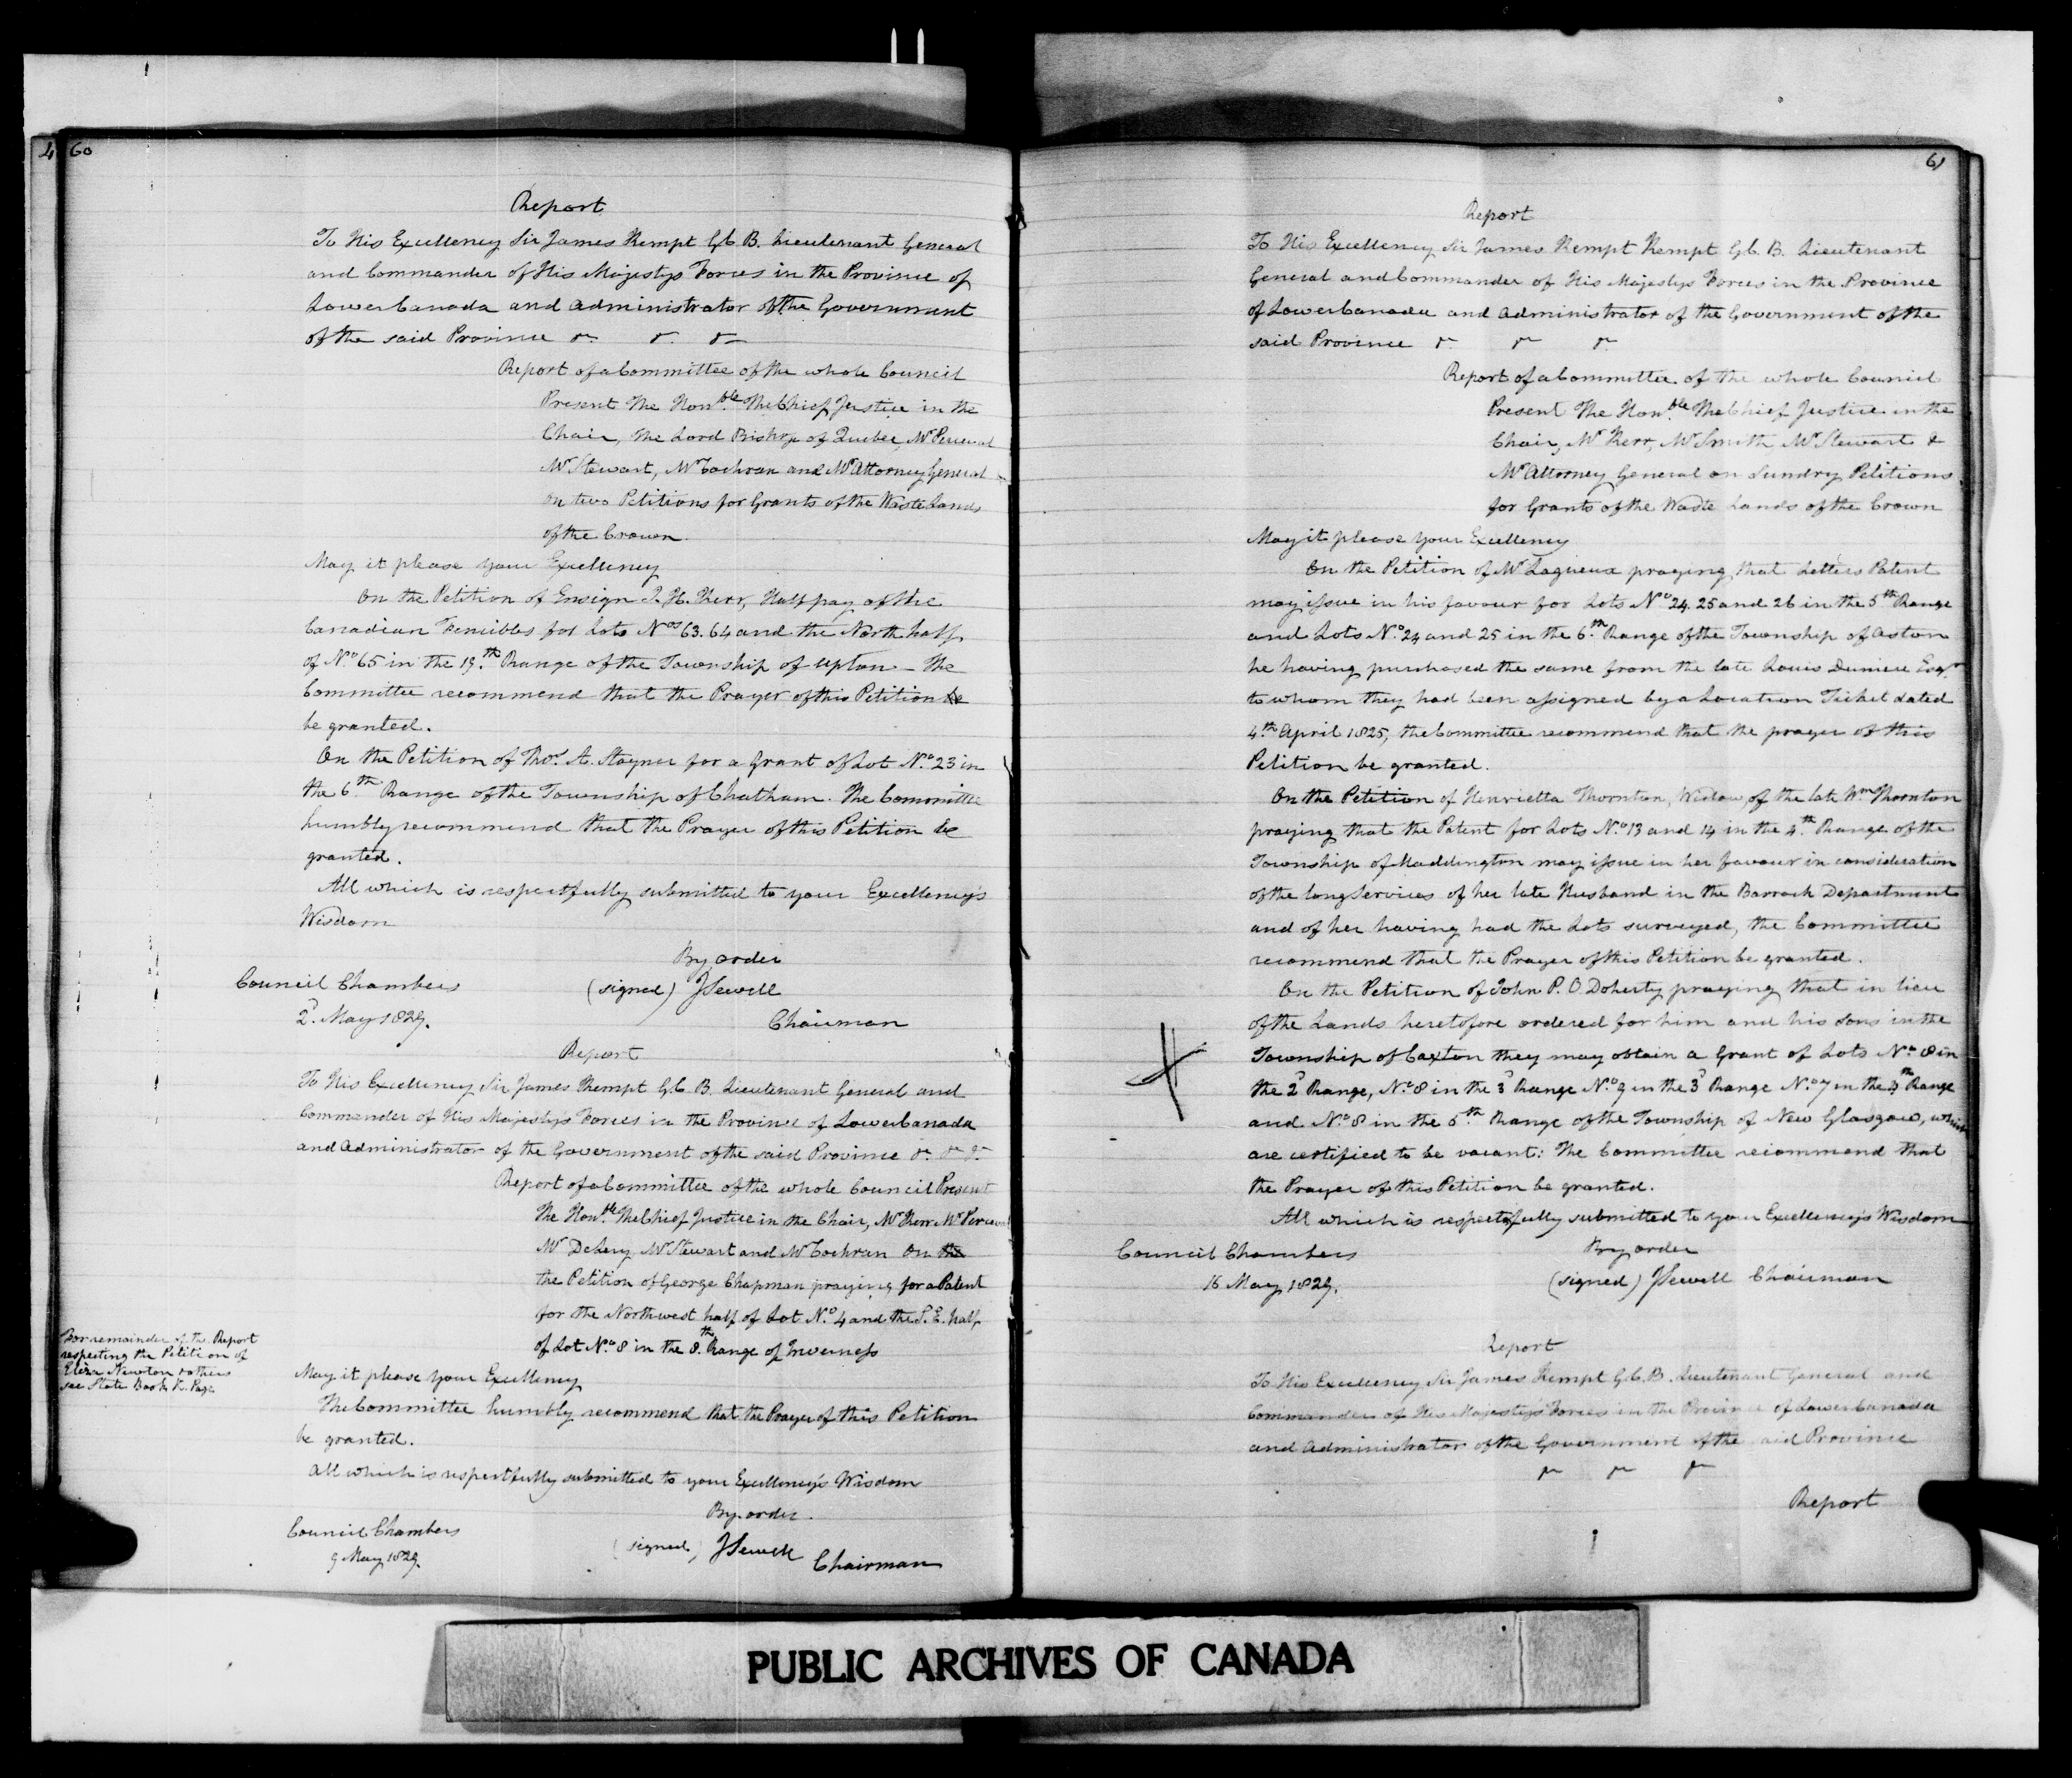 4 60
Report
To His Excellency Sir James Kempt G.C.B. Lieutenant General
and Commander of His Majestys Forces in the Province of
Lower Canada and Administrator of the Government
of the said Province &c. &c. &c.
Report of a Committee of the whole Council
Present The Honble. The Chief Justice in the
Chair, The Lord Bishop of Quebec, Mr Perceval
Mr Stewart, Mr Cochran and Mr Attorney General
On two Petitions for Grants of the Waste Lands
of the Crown.
May it please your Excellency
On the Petition of Ensign J. H. Kerr, Half pay of the
Canadian Fencibles for Lots Nos 63. 64 and the North half
of No. 65 in the 19th. Range of the Township of Upton – The
Committee recommend that the Prayer of this Petition be
be granted.
On the Petition of Thos. A. Stayner for a Grant of Lot No. 23 in
the 6th. Range of the Township of Chatham. The Committee
humbly recommend that the Prayer of this Petition be
granted.
All which is respectfully submitted to your Excellency's
Wisdom
By order
Council Chambers (signed) J Sewell
2d. May 1829. Chairman
Report
To His Excellency Sir James Kempt G.C.B. Lieutenant General and
Commander of His Majesty's Forces in the Province of Lower Canada
and Administrator of the Government of the said Province &c. &c. &c.
Report of a Committee of the whole Council Present
The Honble. The Chief Justice in the Chair, Mr Kerr Mr Perceval
Mr DeLery Mr Stewart and Mr Cochran On the
the Petition of George Chapman praying for a Patent
for the Northwest half of Lot No. 4 and the S. E. half
of Lot No. 8 in the 8th. Range of Inverness
For remainder of the Report
respecting the Petition of
Eliza Newton & others
see State Book K. Page
May it please your Excellency
The Committee humbly recommend that the Prayer of this Petition
be granted.
All which is respectfully submitted to your Excellency's Wisdom
By order.
Council Chambers (signed) J Sewell
9 May 1829. Chairman
61
Report
To His Excellency Sir James Kempt Kempt G.C.B. Lieutenant
General and Commander of His Majestys Forces in the Province
of Lower Canada and Administrator of the Government of the
said Province &c. &c. &c.
Report of a Committee of the whole Council
Present The Honble. The Chief Justice in the
Chair, Mr Kerr, Mr Smith, Mr Stewart &
Mr Attorney General on Sundry Petitions
for Grants of the Waste Lands of the Crown
May it please your Excellency
On the Petition of Mr Lagueux praying that Letters Patent
may issue in his favour for Lots No. 24. 25 and 26 in the 5th Range
and Lots No. 24 and 25 in the 6th. Range of the Township of Aston
he having purchased the same from the late Louis Duniere Esqr.
to whom they had been assigned by a Location Ticket dated
4th. April 1825, the Committee recommend that the prayer of this
Petition be granted.
On the Petition of Henrietta Thornton, Widow of the late Wm Thornton
praying that the Patent for Lots No. 13 and 14 in the 4th. Range of the
Township of Maddington may issue in her favour in consideration
of the long Services of her late Husband in the Barrack Department
and of her having had the Lots surveyed, the Committee
recommend that the Prayer of this Petition be granted.
On the Petition of John P. O. Doherty praying that in lieu
of the Lands heretofore ordered for him and his Sons in the
Township of Caxton they may obtain a Grant of Lots No. 8 in
the 2d Range, No. 8 in the 3d Range No. 9 in the 3d Range No. 7 in the 4th Range
and No. 8 in the 5th Range of the Township of New Glasgow, which
are certified to be vacant: The Committee recommend that
the Prayer of this Petition be granted.
All which is respectfully submitted to your Excellency's Wisdom
Council Chambers By order
16 May 1829. (signed) J Sewell Chairman
Report
To His Excellency Sir James Kempt G.C.B. Lieutenant General and
Commander of His Majesty's Forces in the Province of Lower Canada
and Administrator of the Government of the said Province
&c. &c. &c.
Report
PUBLIC ARCHIVES OF CANADA